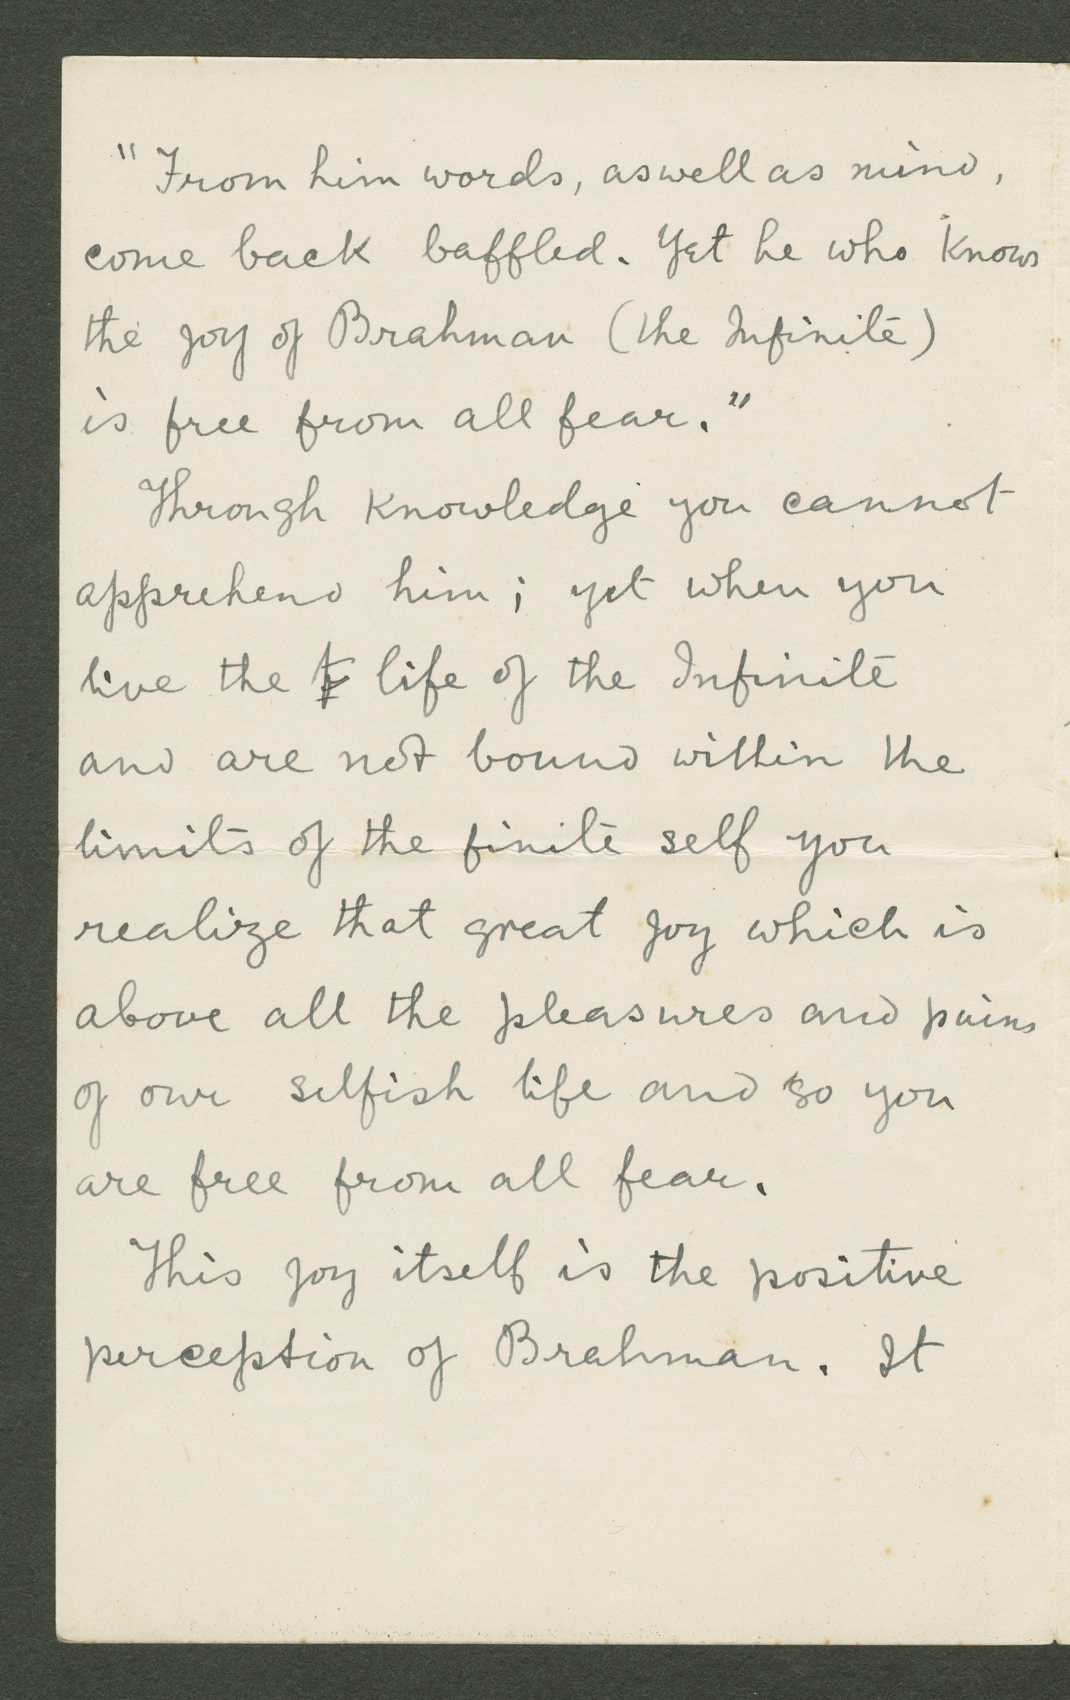 "From him words, as well as mind,
come back baffled. Yet he who knows
the joy of Brahman (the Infinite)
is free from all fear."
Through knowledge you cannot
apprehend him; yet when you
live the life of the Infinite
and are not bound within the
limits of the finite self you
realize that great joy which is
above all the pleasures and pains
of our selfish life and so you
are free from all fear.
This joy itself is the positive
perception of Brahman. It